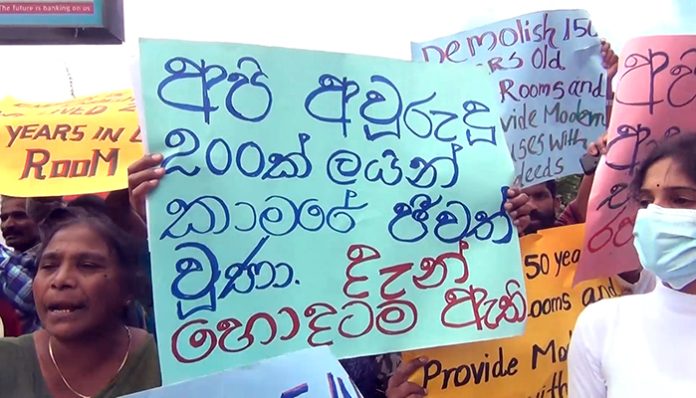 The future is banking on us.
YEARS IN L
ROOM
අපි අවුරුදු
200ක් ලයින්
කාමරේ ජීවත්
වූණා. දැන්
හොදටම ඇති
Demolish 150
RS Old
Rooms and
vide Modern
ses with
deeds
50 yea
ooms and
Provide Mod
with